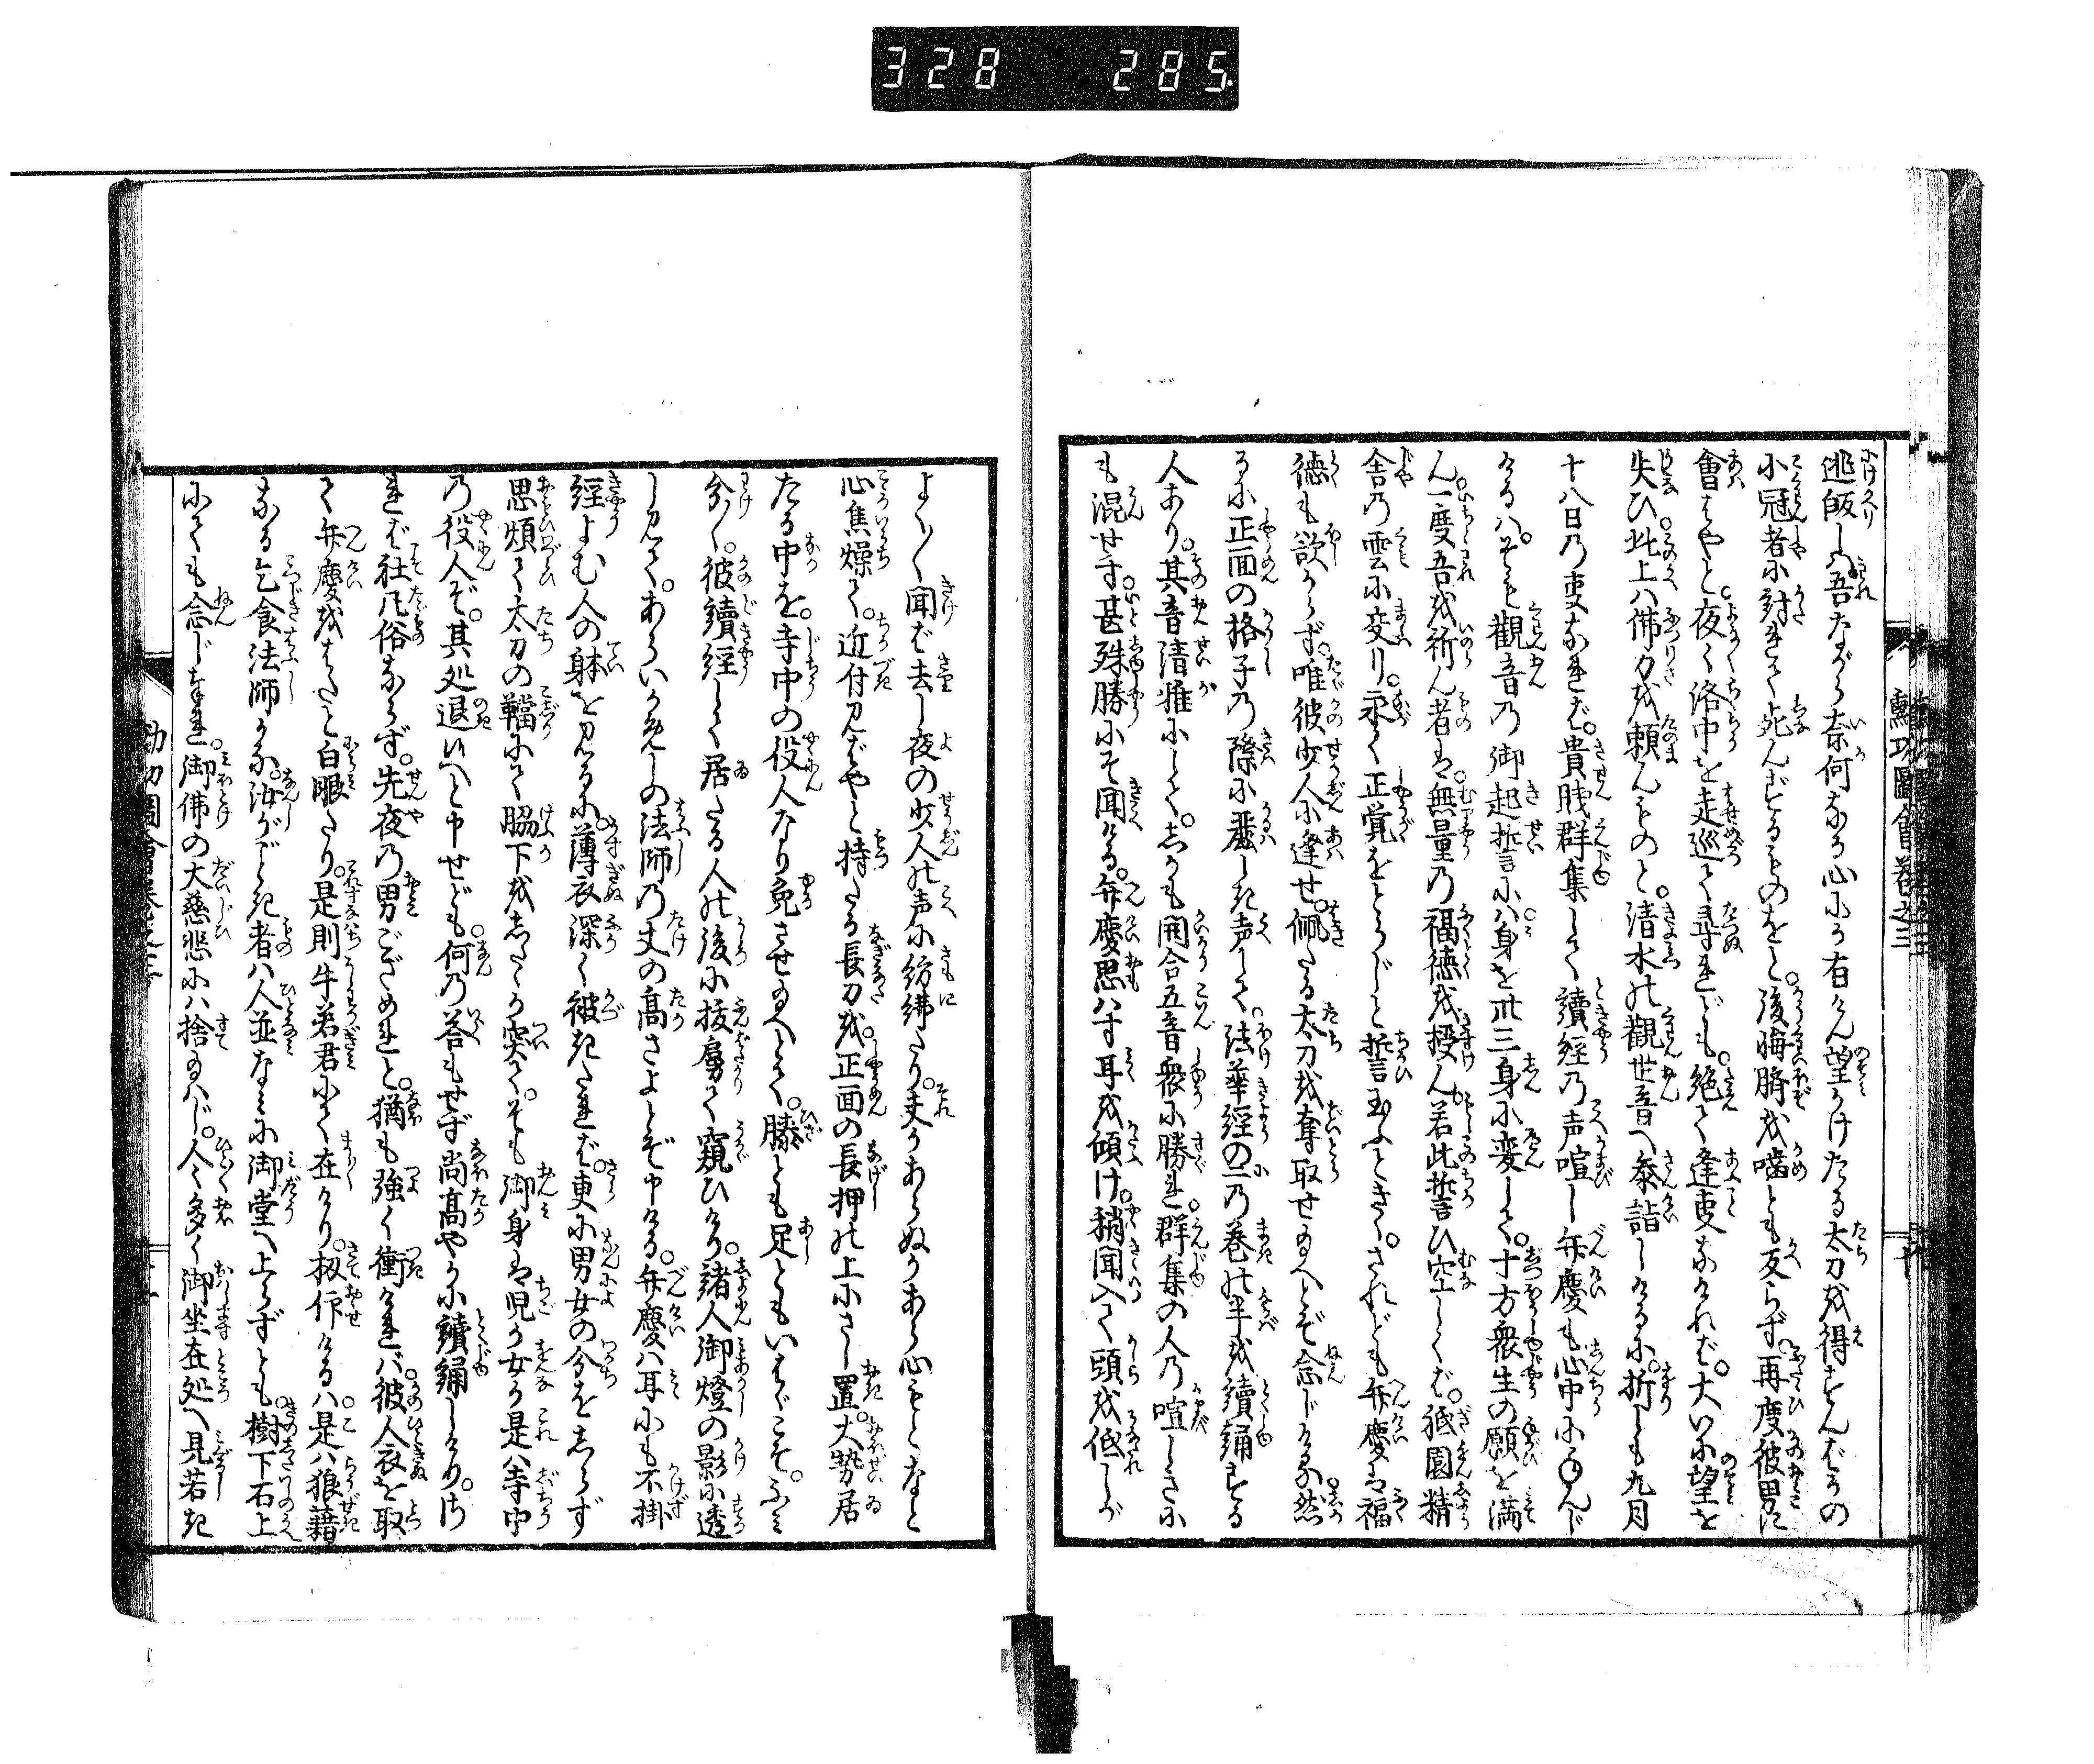 328 285
逃皈しが吾ながら奈何なる心にか有けん望かけたる太刀を得ざんばかの
小冠者に討れて死んずるものをと。後悔臍を噛ども反らず。再度彼男に
會ばやと。夜々洛中を走巡て尋れども。絶て逢事なければ。大いに望を
失ひ。此上ハ佛力を頼んものと。清水の觀世音へ参詣しけるに。折しも九月
十八日の事なれば。貴賎群集して讀経の声喧し弁慶も心中に念んじ
けるハ。そも觀音の御起誓にハ。身を卅三身に変して。十方衆生の願を満
ん。一度吾を祈ん者は。無量の福徳を授ん若此誓ひ空しくば。祇園精
舎の雲に変り。永く正覚をとらじと誓玉ふときく。されども弁慶は福
徳も欲からず。唯彼少人に逢せ。佩たる太刀を奪取せ玉へとぞ念じける。然
るに正面の格子の際に麗しき声して。法華経の一の巻の半を讀誦する
人あり。其音清雅にして。しかも開合五音衆に勝れ。群集の人の喧しきに
も混せず。甚殊勝にぞ聞ける。弁慶思ハず耳を傾け。稍聞入て頭を低しが
よく〳〵聞ば去し夜の少人の声に彷彿たり。夫かあらぬかあら心もとなと
心焦燥て。近付見ばやと持たる長刀を。正面の長押の上にさし置。大勢居
たる中を。寺中の役人なり免させ玉へとて。膝とも足ともいはゞこそ。ふミ
分々。彼讀経して居たる人の後に抜扈て窺ひける。諸人御燈の影に透
し見て。あらいかめしの法師の丈の高さよとぞ申ける。弁慶ハ耳にも不掛
経よむ人の躰を見るに。薄衣深く被きたれば。更に男女の分をしらず
思煩て太刀の鞘にて脇下をしたゝか突て。そも御身は児か女か是ハ寺中
の役人ぞ。其処退いへと申せども。何の荅もせず尚高やかに讀誦しけり。
れば社凡俗ならず。先夜の男ござめれと。猶も強く衝けれバ。彼人衣を取
て弁慶をはたと白眼たり。是則牛若君にて在けり。扨仰けるハ。是ハ狼藉
なる乞食法師かな。汝がごとき者ハ人並なミに御堂へ上らずとも。樹下石上
にても念じなバ。御佛の大慈悲にハ捨玉ハじ。人々多く御坐在処へ見若き